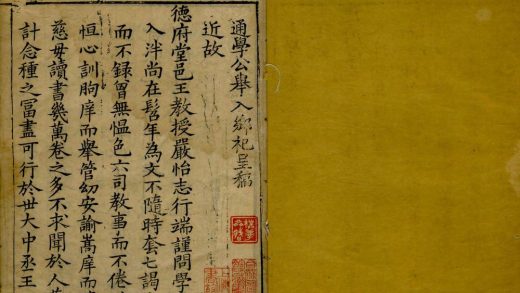 通學公舉入鄉祀呈稿
近故
德府堂邑王教授嚴怡志行端謹問學
入泮尚在髫年為文不隨時套七謁
而不錄曾無慍色六司教事而不倦
恒心訓朐庠而擧管幼安諭嵩庠而
慈毋讀書幾萬卷之多不求聞於人
計念種之冨盡可行於世大中丞王